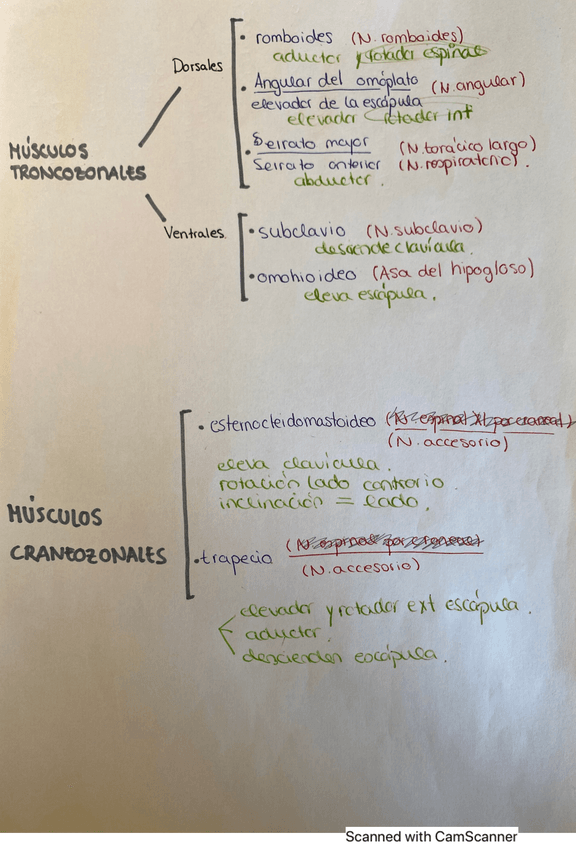 MÚSCULOS
TRONCOZONALES
Dorsales
• romboides (N. romboides)
aductor y rotador espinas
• Angular del omóplato (N. angular)
elevador de la escápula
elevador rotador int
• Serrato mayor (N. torácico largo)
Serrato anterior (N. respiratorio).
abductor.
Ventrales
• subclavio (N. subclavio)
desciende clavícula.
• omohioideo (Asa del hipogloso)
eleva escápula.
MÚSCULOS
CRANEOZONALES
• esternocleidomastoideo
(N. accesorio)
eleva clavícula.
rotación lado contrario.
inclinación = lado.
• trapecio
(N. accesorio)
elevador y rotador ext escápula.
aductor.
descienden escápula.
Scanned with CamScanner